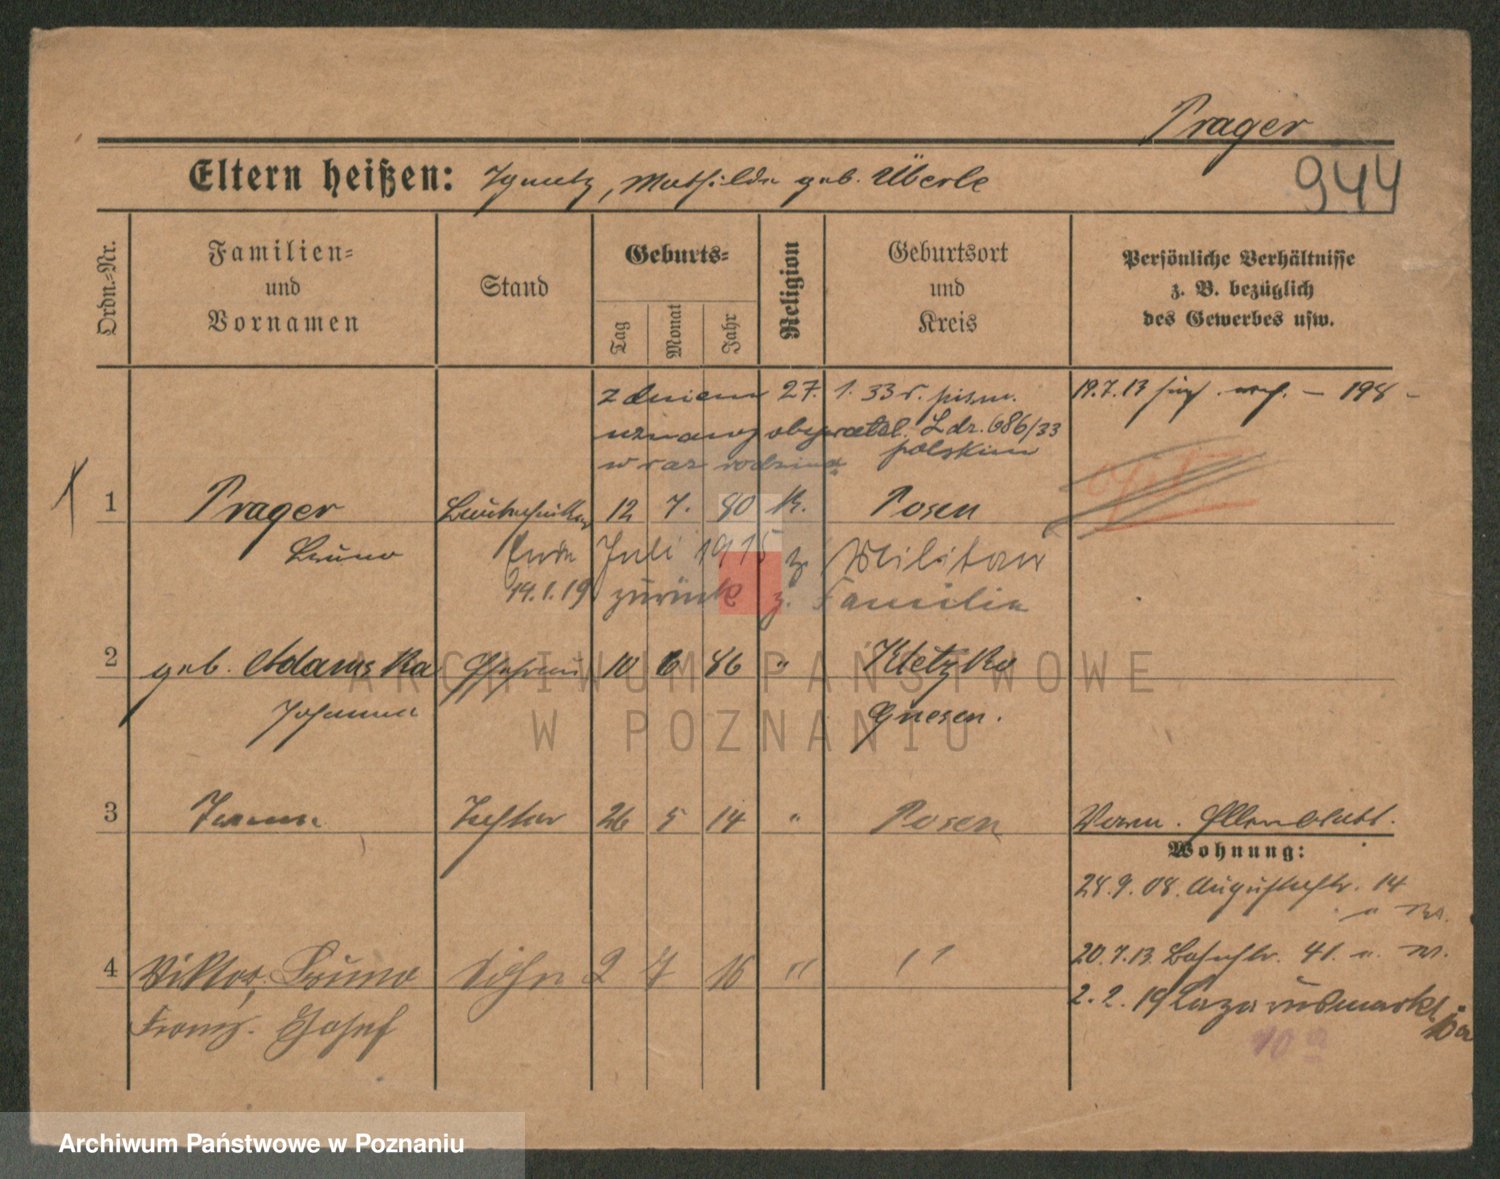 Prager
944
Eltern heißen: Ignatz, Mathilde geb. Überle
Ordn.-Nr.
Familien-
und
Vornamen
Stand
Geburts-
Tag
Monat
Jahr
Religion
Geburtsort
und
Kreis
Persönliche Verhältnisse
z. B. bezüglich
des Gewerbes usw.
z dniem 27. 1. 33 r. pism.
uznany obywatel. L dz. 686/33
w raz rodziną polskim
19.7.13 — 198 -
1 Prager 12 7. 80 K. Posen
Bruno Ende Juli 1915 z. Militär
14.1.19 zurück z. Familie
2 geb. Adamska Ehefrau 10 6 86 " Kletzko
Johanna Gnesen.
3 Tochter 26 5 14 " Posen
Wohnung:
28.9.08. Augustastr. 14
4 Viktor, Bruno Sohn 2 7 16 " "
Franz. Josef
20.7.13. Bahnstr. 41.
2.2.19 Lazarusmarkt
10a
10a
ARCHIWUM PAŃSTWOWE
W POZNANIU
Archiwum Państwowe w Poznaniu